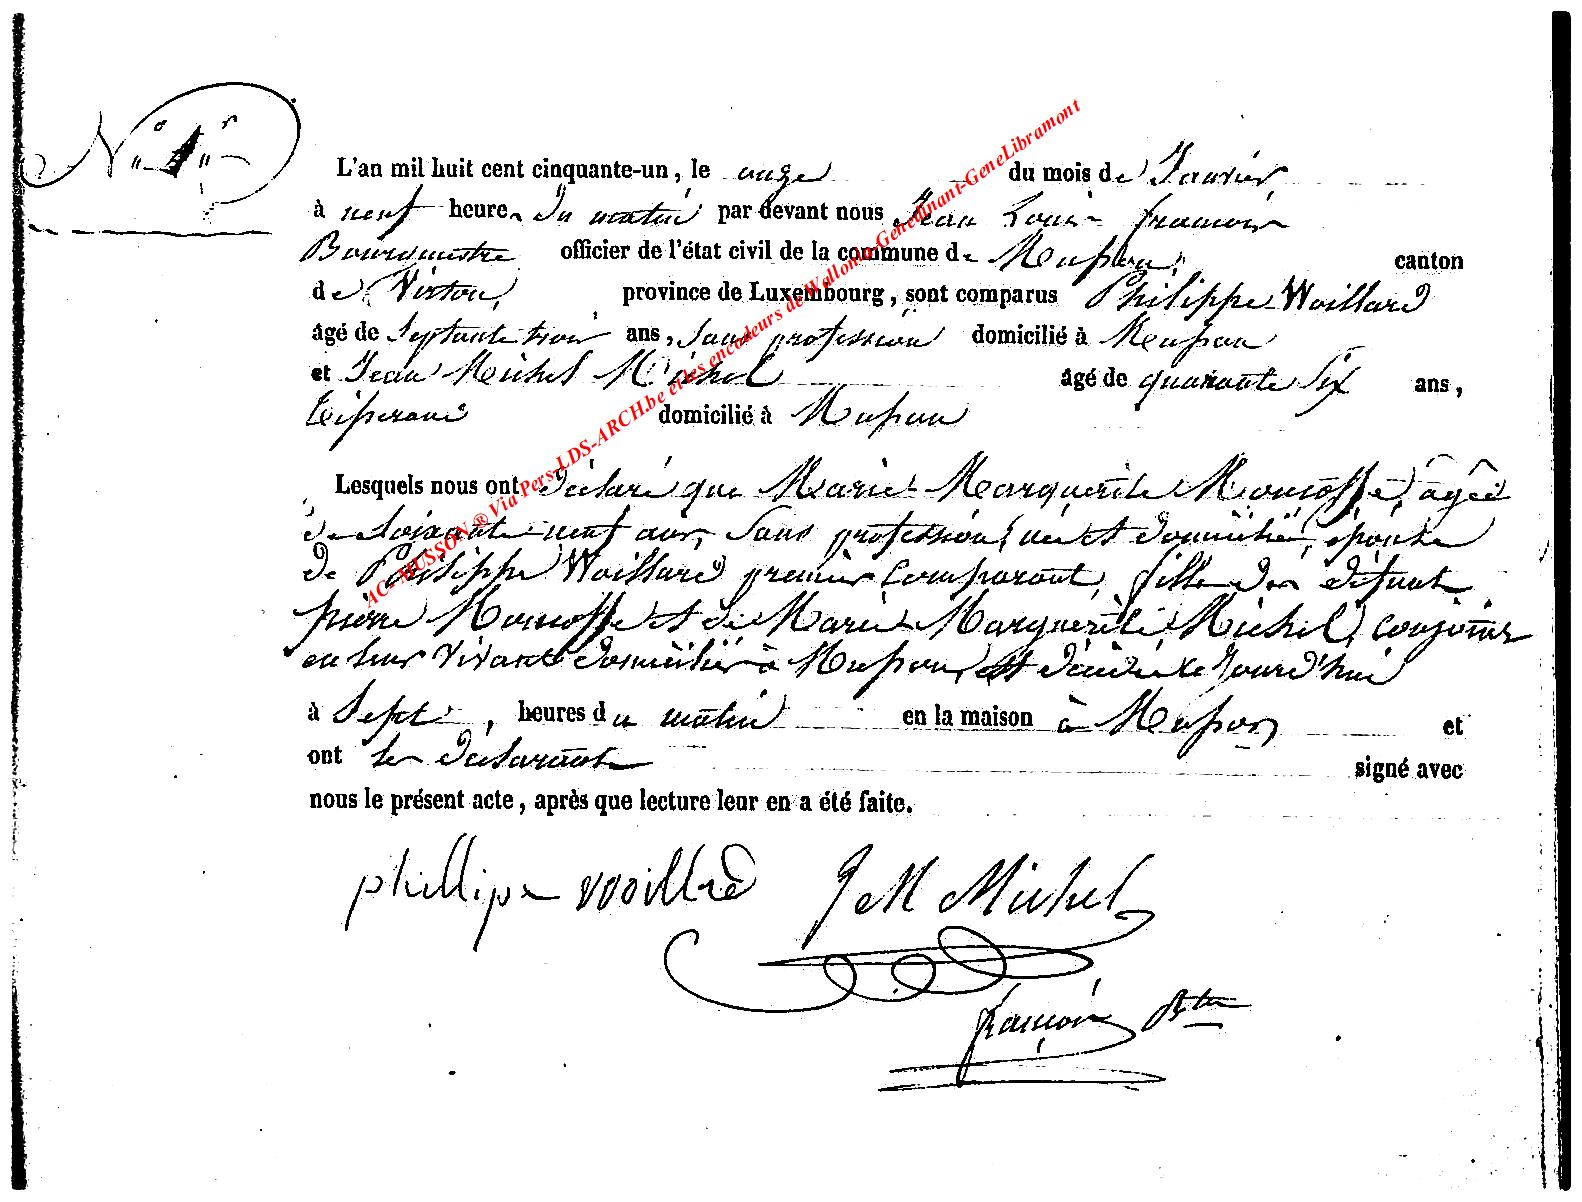 N° 1er
L'an mil huit cent cinquante-un, le onze du mois de Janvier
à neuf heures du matin par devant nous Jean Louis françois
Bourgmestre officier de l'état civil de la commune de Musson, canton
de Virton, province de Luxembourg, sont comparus Philippe Woillard
âgé de Septante trois ans, Sans profession domicilié à Musson
et Jean Michel Michel âgé de quarante Six ans,
Tisserand domicilié à Musson
Lesquels nous ont déclaré que Marie Marguerite âgée
de Soixante neuf ans, Sans profession, née et domiciliée, épouse
de Philippe Woillard premier Comparant, fille des défunts
pierre et de Marie Marguerite Michel, Conjoints
en leur Vivant domiciliés à Musson, est décédée ce Jourd'hui
à Sept, heures du matin en la maison à Musson et
ont les déclarants signé avec
nous le présent acte, après que lecture leur en a été faite.
phillipe woillrd J M Michel
françois Btre
AC-MUSSON ® Via Pers-LDS-ARCH.be et les encodeurs de Wallonia-Genedinant-GeneLibramont